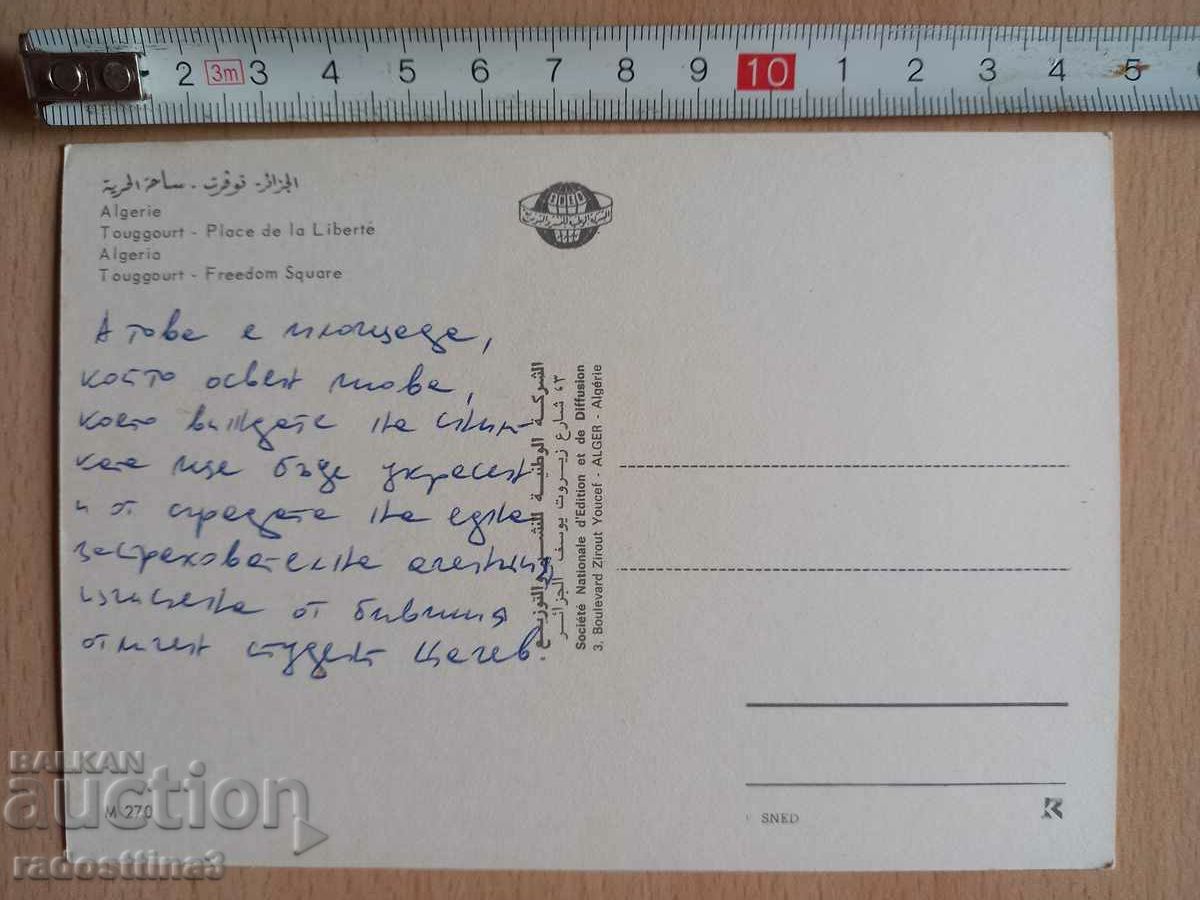 2 3m 3 4 5 6 7 8 9 10 1 2 3 4 5
الجزائر - توقرت - ساحة الحرية
Algerie
Touggourt - Place de la Liberté
Algeria
Touggourt - Freedom Square
SNED
А това е площада,
който освен това,
което виждате на
ще бъде украсен
и от сградата на една
застрахователна агенция
от бившия
отличен студент Цачев.
الشركة الوطنية للنشر والتوزيع
٣، شارع زيروت يوسف الجزائر
Société Nationale d'Edition et de Diffusion
3, Boulevard Zirout Youcef - ALGER - Algérie
M 270
SNED
BALKAN
auction
radosttina3